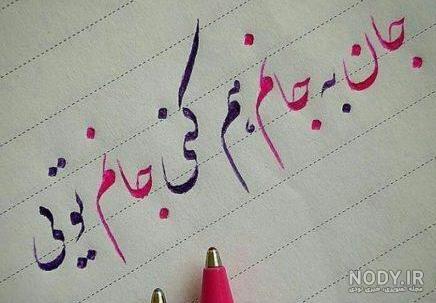 جان به جانم هم کنی جانم تویی
NODY.IR
مجله تصویری، خبری نودی